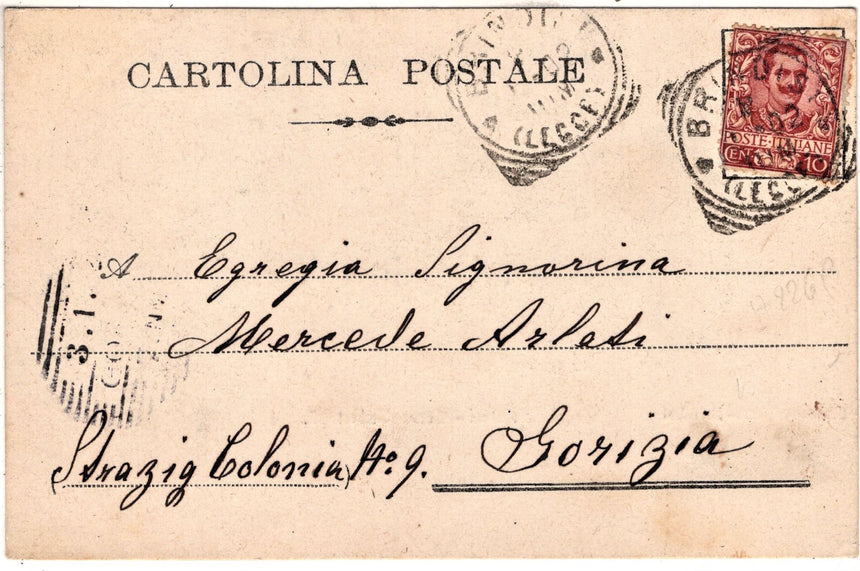 CARTOLINA POSTALE
BRINDISI
02
(LECCE)
BRINDISI
02
(LECCE)
POSTE ITALIANE
CENT 10
A Egregia Signorina
Mercede Arlati
3.1.
(Strazig Colonia) No. 9. Gorizia